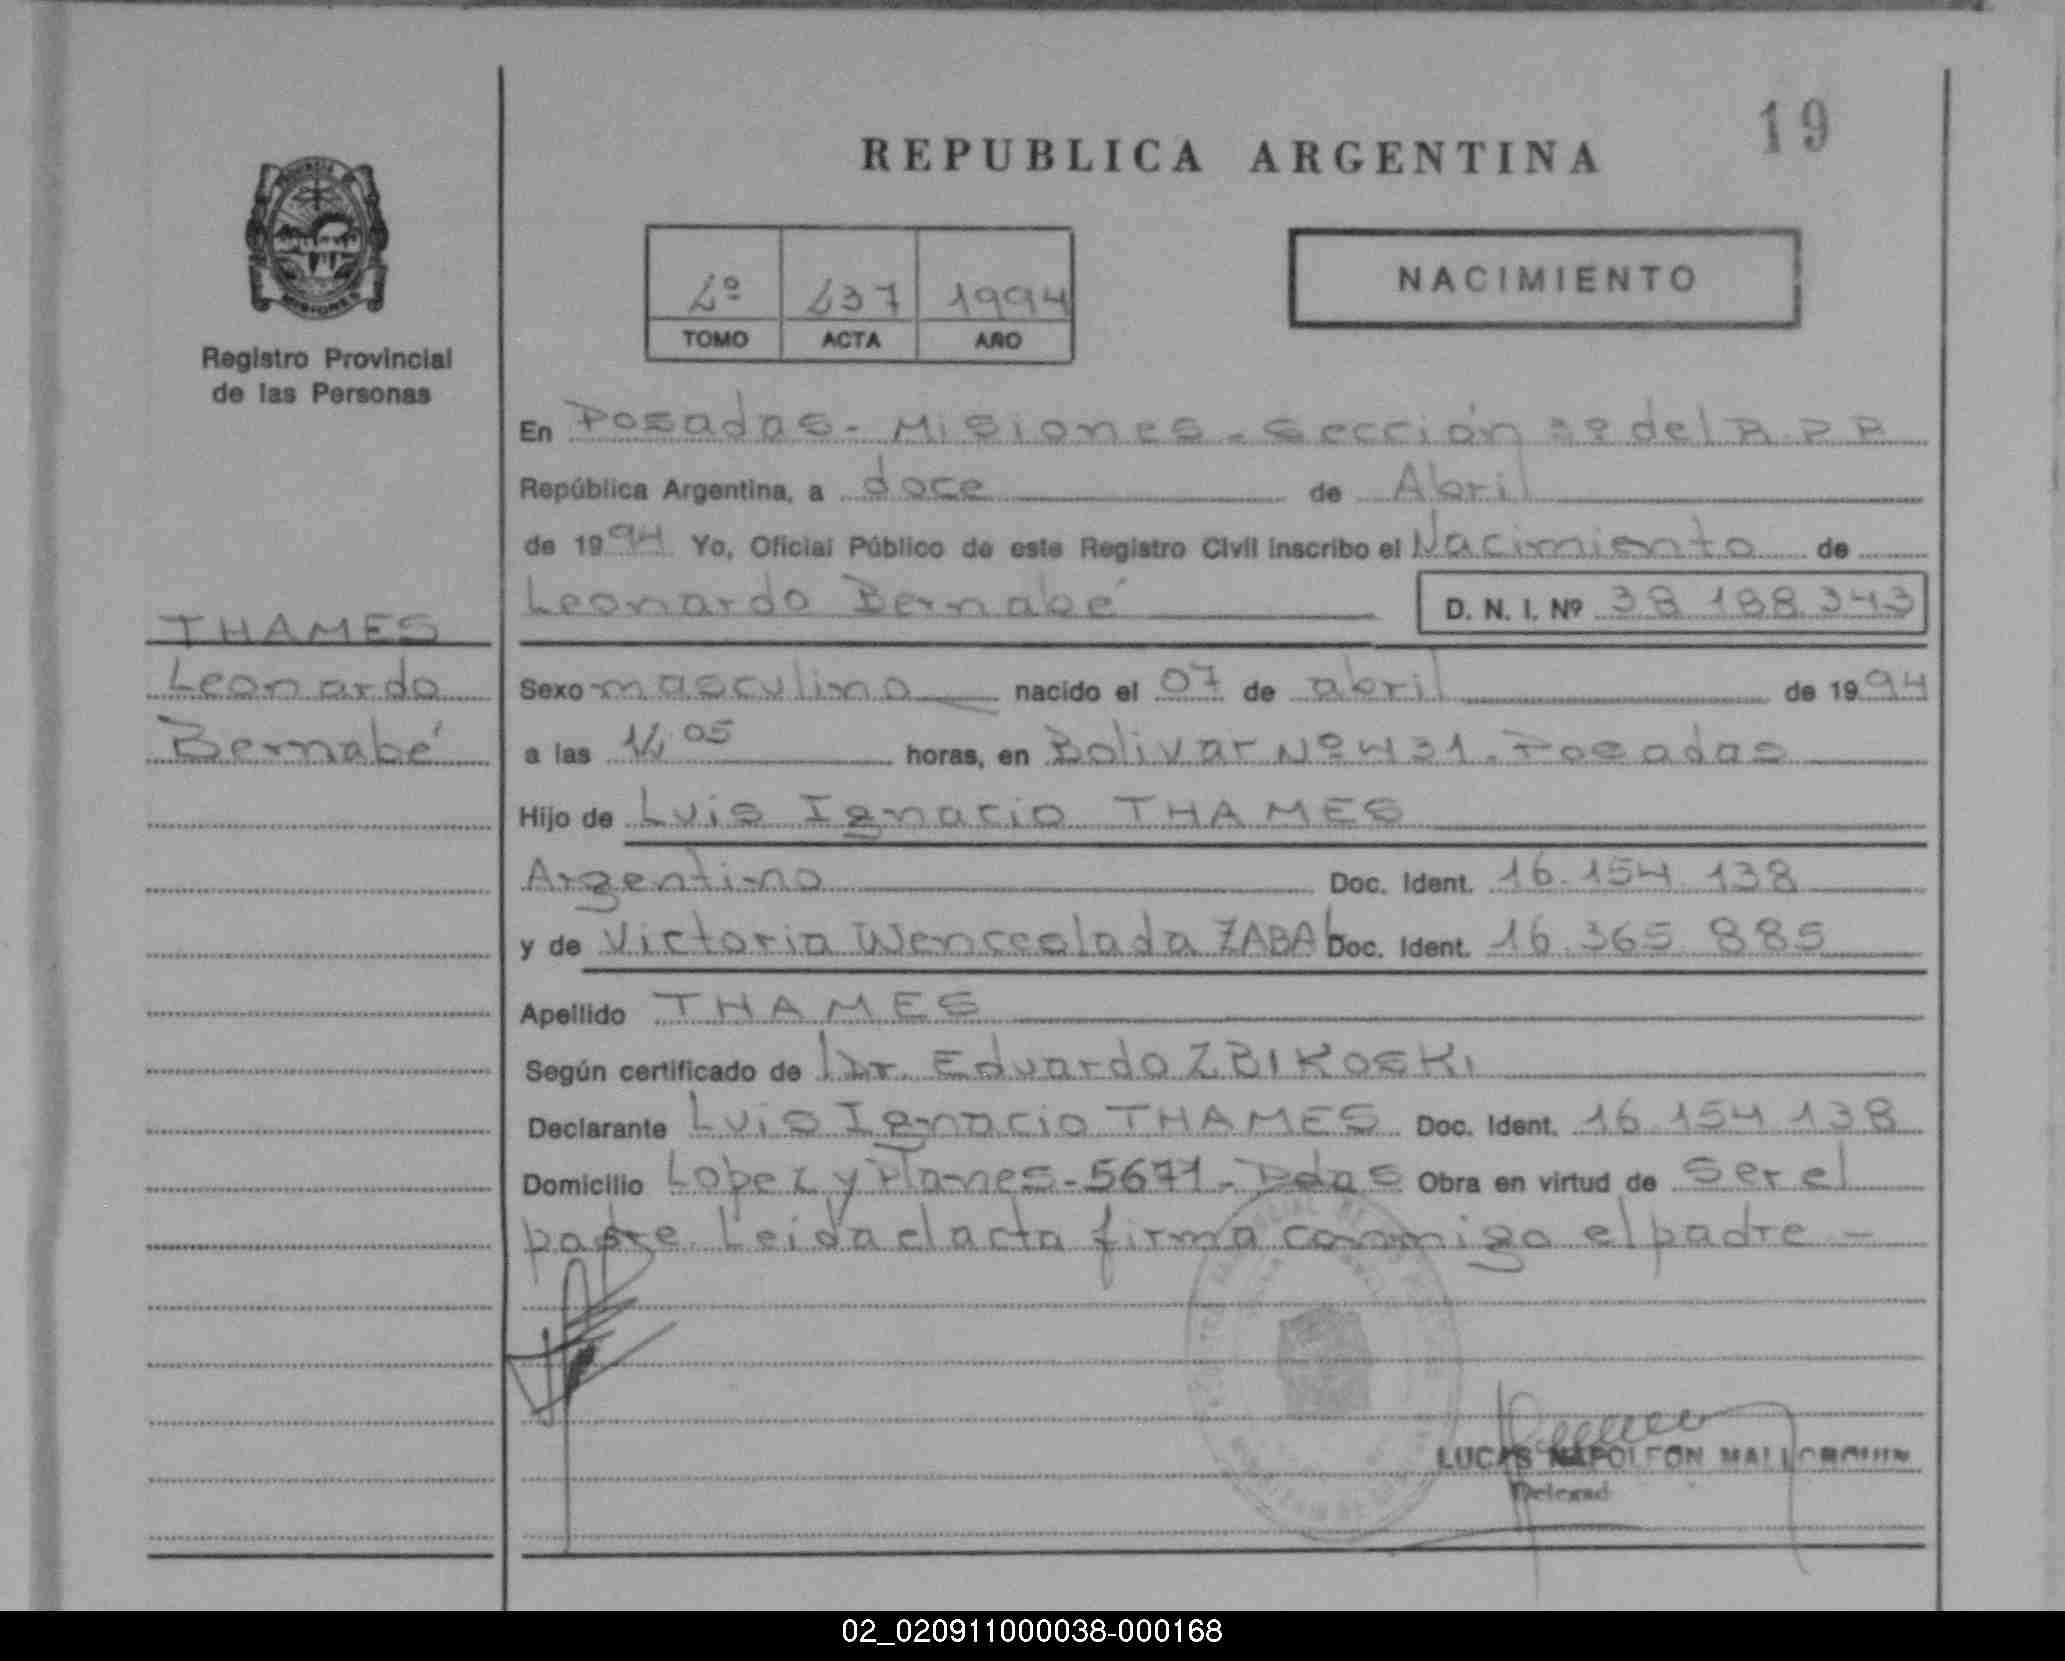 19
REPUBLICA ARGENTINA
NACIMIENTO
2º 237 1994
TOMO ACTA AÑO
MISIONES
Registro Provincial
de las Personas
THAMES
Leonardo
Bernabé
En Posadas - Misiones - Sección 3º del R.P.P
República Argentina, a doce de Abril
de 1994 Yo, Oficial Público de este Registro Civil inscribo el Nacimiento de
Leonardo Bernabé D. N. I. Nº 38.188.343
Sexo masculino nacido el 07 de abril de 1994
a las 14,05 horas, en Bolivar Nº 431 - Posadas
Hijo de Luis Ignacio THAMES
Argentino Doc. Ident. 16.154.138
y de Victoria Wenceslada ZABAL Doc. Ident. 16.365.885
Apellido THAMES
Según certificado de Dr. Eduardo ZBIKOSKI
Declarante Luis Ignacio THAMES Doc. Ident. 16.154.138
Domicilio Lopez y Planes - 5671 - Pdas Obra en virtud de Ser el
padre. Leida el acta firma conmigo el padre -
LUCAS NAPOLEON MALLORQUIN
Delegad
02_020911000038-000168